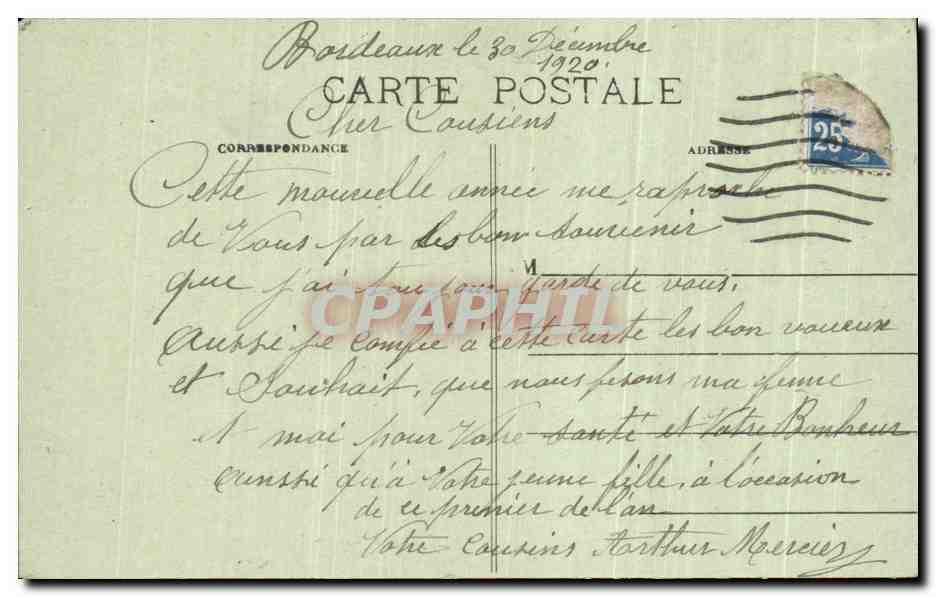 Bordeaux le 30 Décembre
1920.
CARTE POSTALE
Cher Cousiens
CORRESPONDANCE
ADRESSE
25
Cette nouvelle année me raproche
de Vous par les bon souvenir
M
que j'ai toujour garde de vous.
CPAPHIL
Aussi je confie à cette carte les bon voueux
et Souhait, que nous fesons ma femme
et moi pour Votre santé et Votre Bonheur
aussi qu'à Votre jeune fille, à l'occasion
de ce premier de l'an
Votre Cousins Arthur Mercier